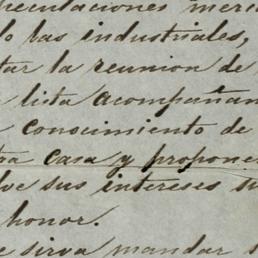 peculaciones merca
lo las industriales,
tar la reunion de
lista acompañan
conocimiento de
tra casa y propone
lve sus intereses
honor.
e sirva mandar